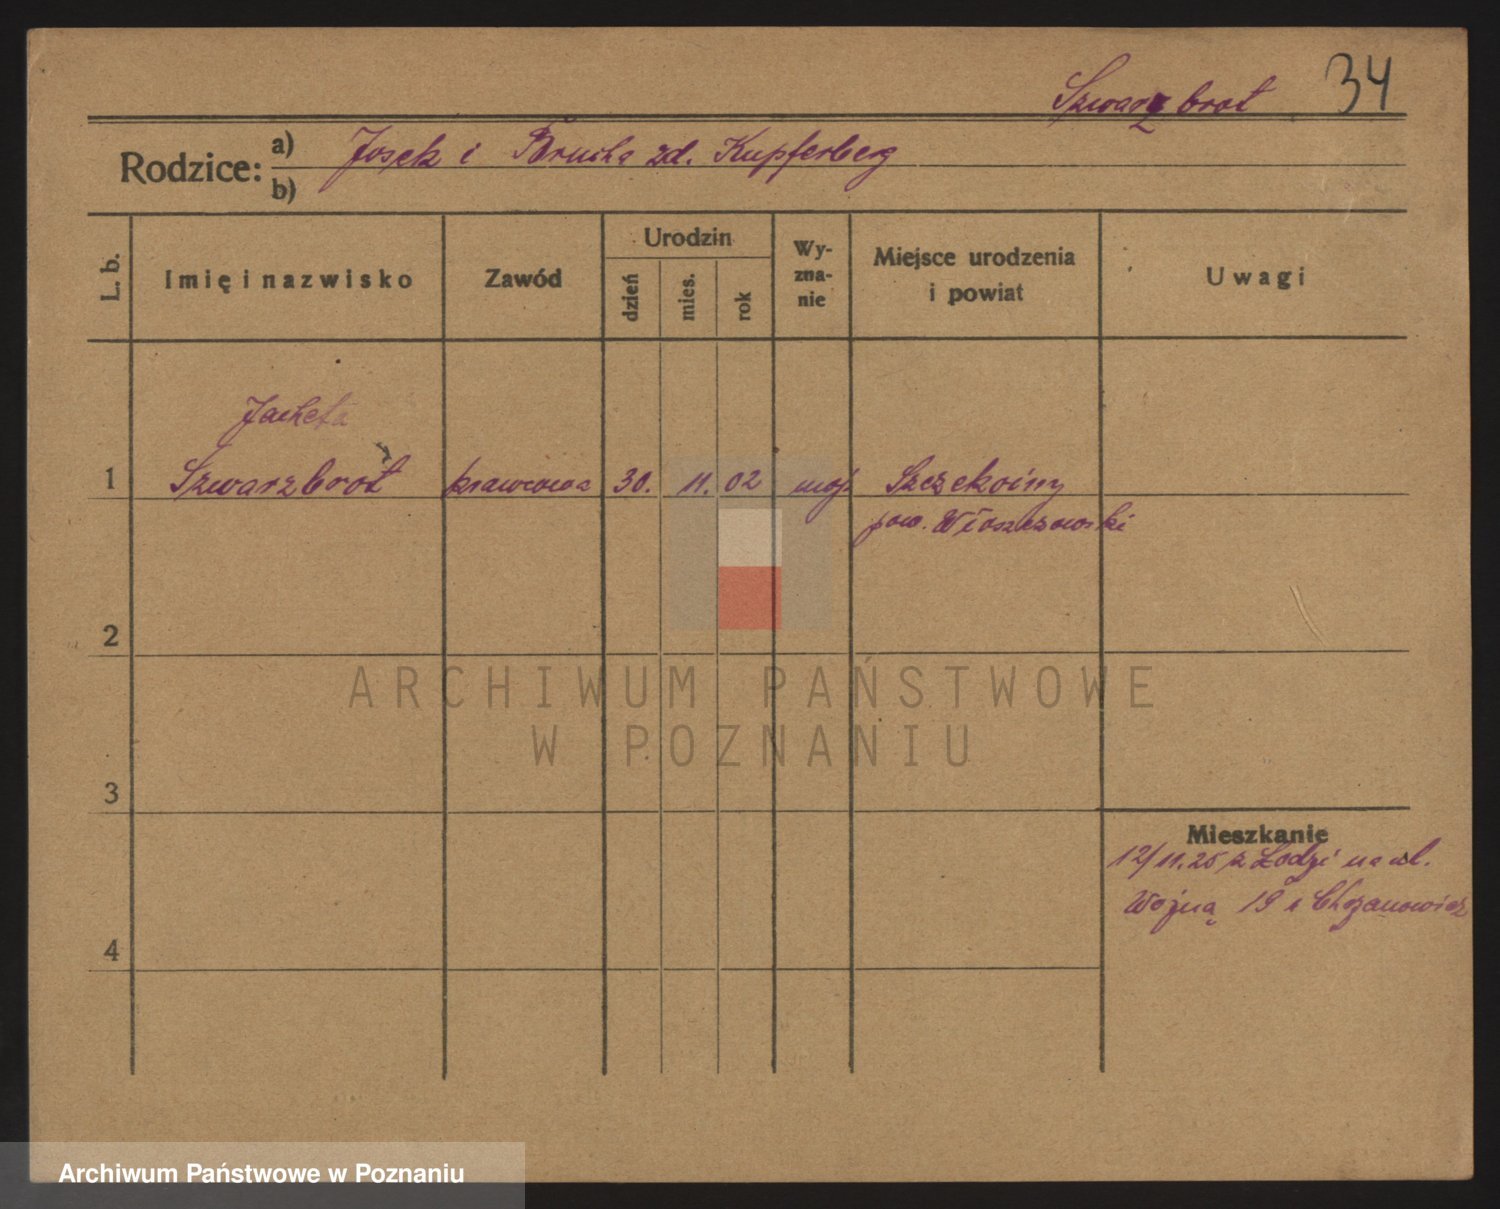 Szwarzbrot 34
Rodzice:
a) Josek i Brucha zd. Kupferberg
b)
L. b.
Imię i nazwisko
Zawód
Urodzin
dzień
mies.
rok
Wy-
zna-
nie
Miejsce urodzenia
i powiat
Uwagi
Jacheta
1 Szwarzbrot krawcowa 30. 11. 02 mojż Szczekoiny
pow. Włoszczowski
2
3
4
Mieszkanie
12/11.25 z Łodzi na ul.
Woźną 19 u Chrzanowicz
ARCHIWUM PAŃSTWOWE
W POZNANIU
Archiwum Państwowe w Poznaniu